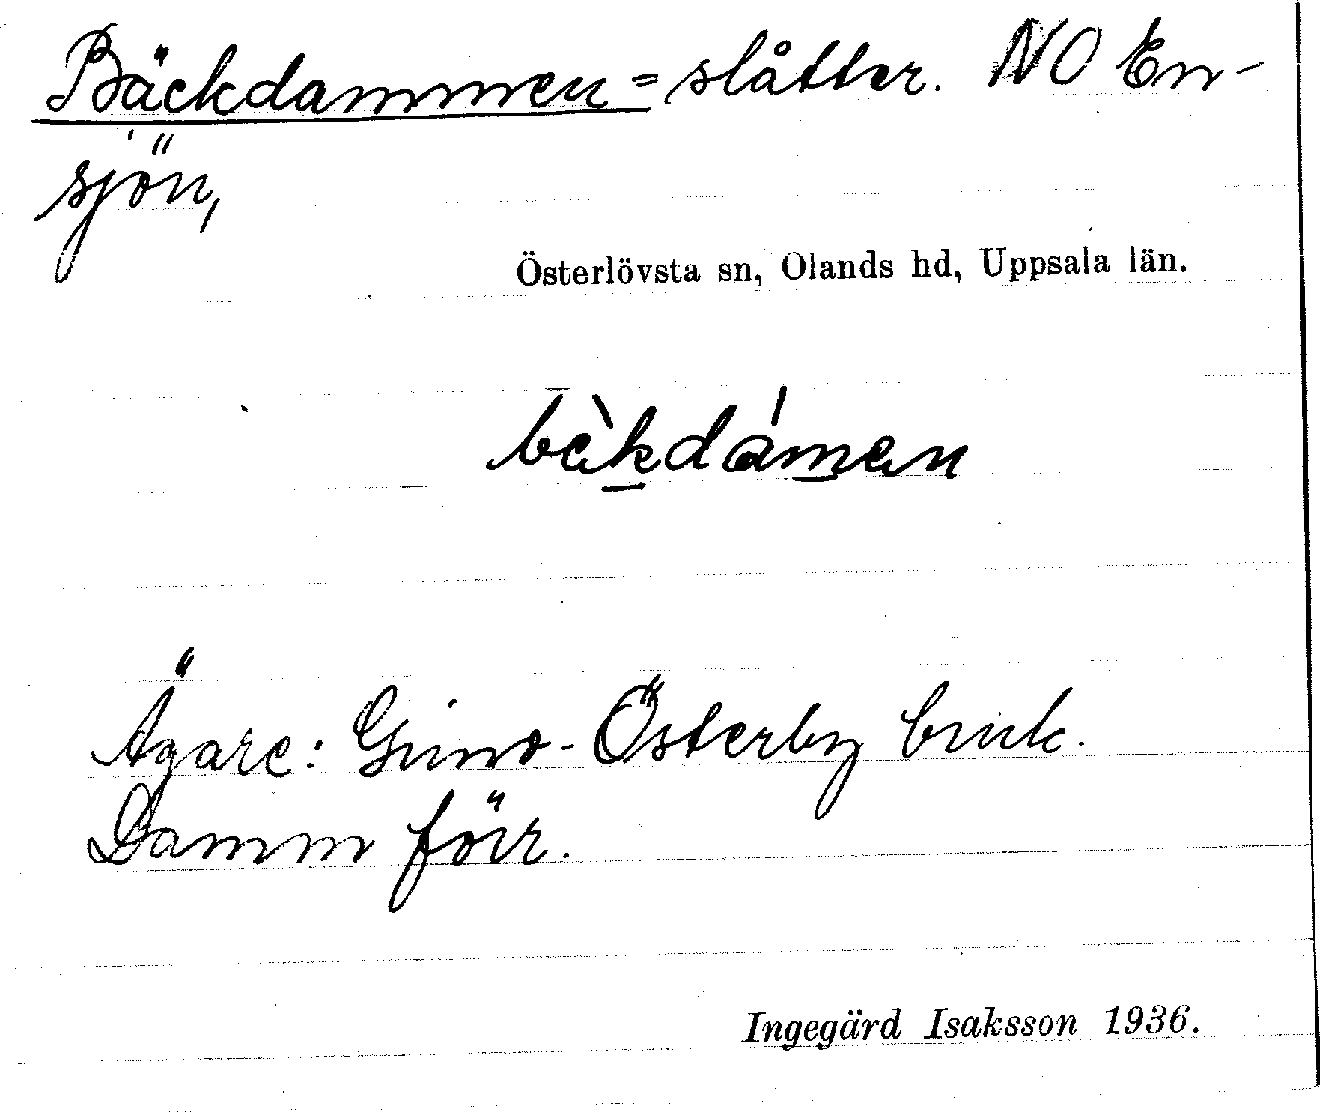 Bäckdammen = slåtter. NO En-
sjön,
Österlövsta sn, Olands hd, Uppsala län.
bὲkdámən
Ägare: Gimo-Österby bruk.
Damm förr.
Ingegärd Isaksson 1936.